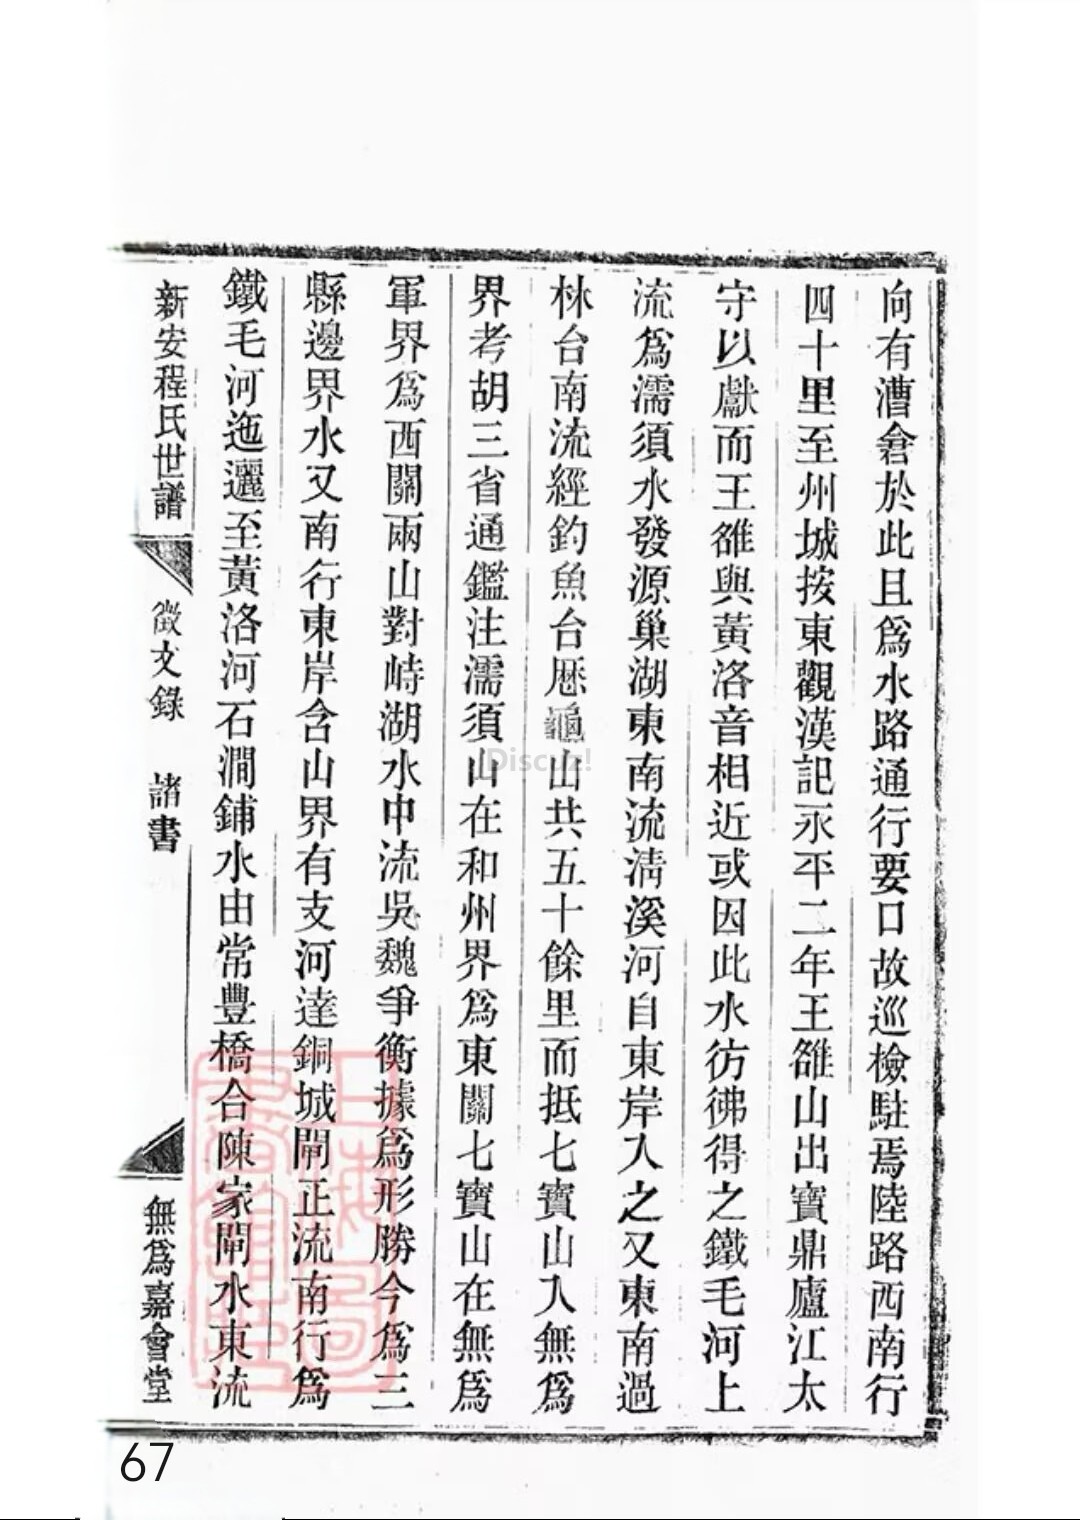 向有漕倉於此且為水路通行要口故巡檢駐焉陸路西南行
四十里至州城按東觀漢記永平二年王雒山出寶鼎廬江太
守以獻而王雒與黃洛音相近或因此水彷彿得之鐵毛河上
流為濡須水發源巢湖東南流清溪河自東岸入之又東南過
林台南流經釣魚台歷龜山共五十餘里而抵七寶山入無為
界考胡三省通鑑注濡須山在和州界為東關七寶山在無為
軍界為西關兩山對峙湖水中流吳魏爭衡據為形勝今為三
縣邊界水又南行東岸含山界有支河達銅城閘正流南行為
鐵毛河迤邐至黃洛河石澗鋪水由常豐橋合陳家閘水東流
新安程氏世譜 徵文錄 諸書 無為嘉會堂
Discuz!
67